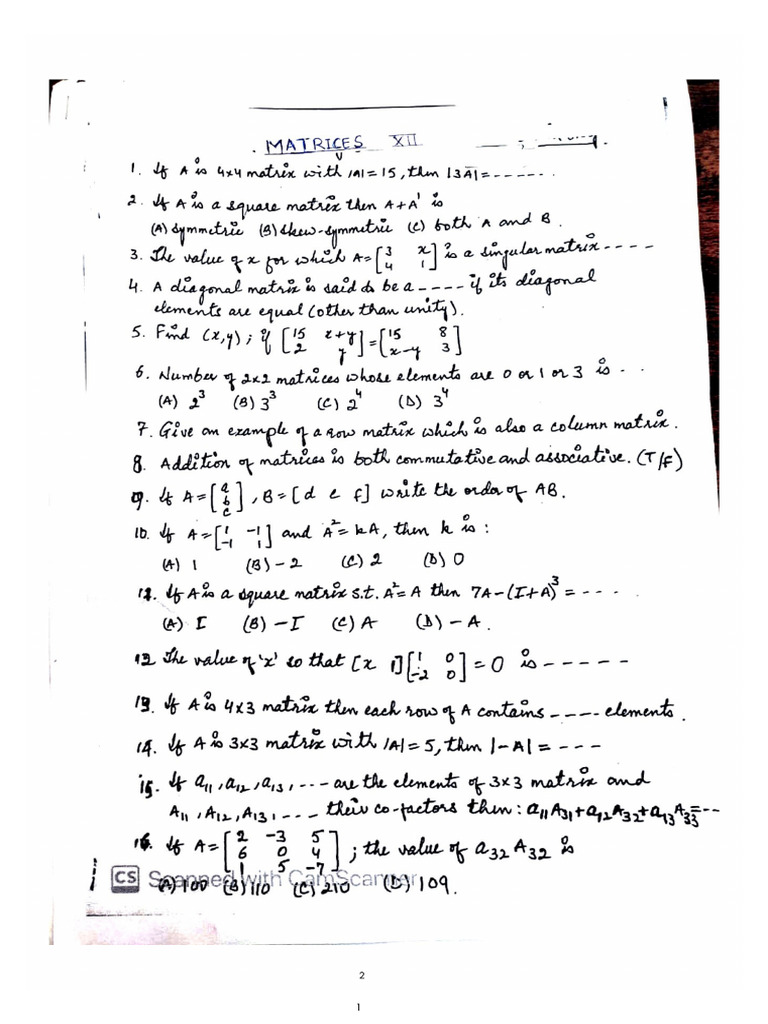 MATRICES XII
1. If A is 4x4 matrix with |A| = 15, then |3A| = ------
2. If A is a square matrix then A + A' is
(A) symmetric (B) skew-symmetric (C) both A and B.
3. The value of x for which A = [3 x
4 1] is a singular matrix ----
4. A diagonal matrix is said to be a ---- if its diagonal
elements are equal (other than unity).
5. Find (x,y); if [15 x+y
2 y] = [15 8
x-y 3]
6. Number of 2x2 matrices whose elements are 0 or 1 or 3 is --
(A) 2³ (B) 3³ (C) 2⁴ (D) 3⁴
7. Give an example of a row matrix which is also a column matrix.
8. Addition of matrices is both commutative and associative. (T/F)
9. If A = [a
b
c], B = [d e f] write the order of AB.
10. If A = [1 -1
-1 1] and A² = kA, then k is:
(A) 1 (B) -2 (C) 2 (D) 0
11. If A is a square matrix s.t. A² = A then 7A-(I+A)³ = ----
(A) I (B) -I (C) A (D) -A.
12 The value of 'x' so that [x 1] [1 0
-2 0] = 0 is -----
13. If A is 4x3 matrix then each row of A contains ---- elements.
14. If A is 3x3 matrix with |A| = 5, then |-A| = ---
15. If a₁₁, a₁₂, a₁₃, --- are the elements of 3x3 matrix and
A₁₁, A₁₂, A₁₃, --- their co-factors then: a₁₁A₃₁+a₁₂A₃₂+a₁₃A₃₃=--
16. If A = [2 -3 5
6 0 4
1 5 -7]; the value of a₃₂ A₃₂ is
(A) 100 (B) 110 (C) 210 (D) 109.
CS Scanned with CamScanner
2
1